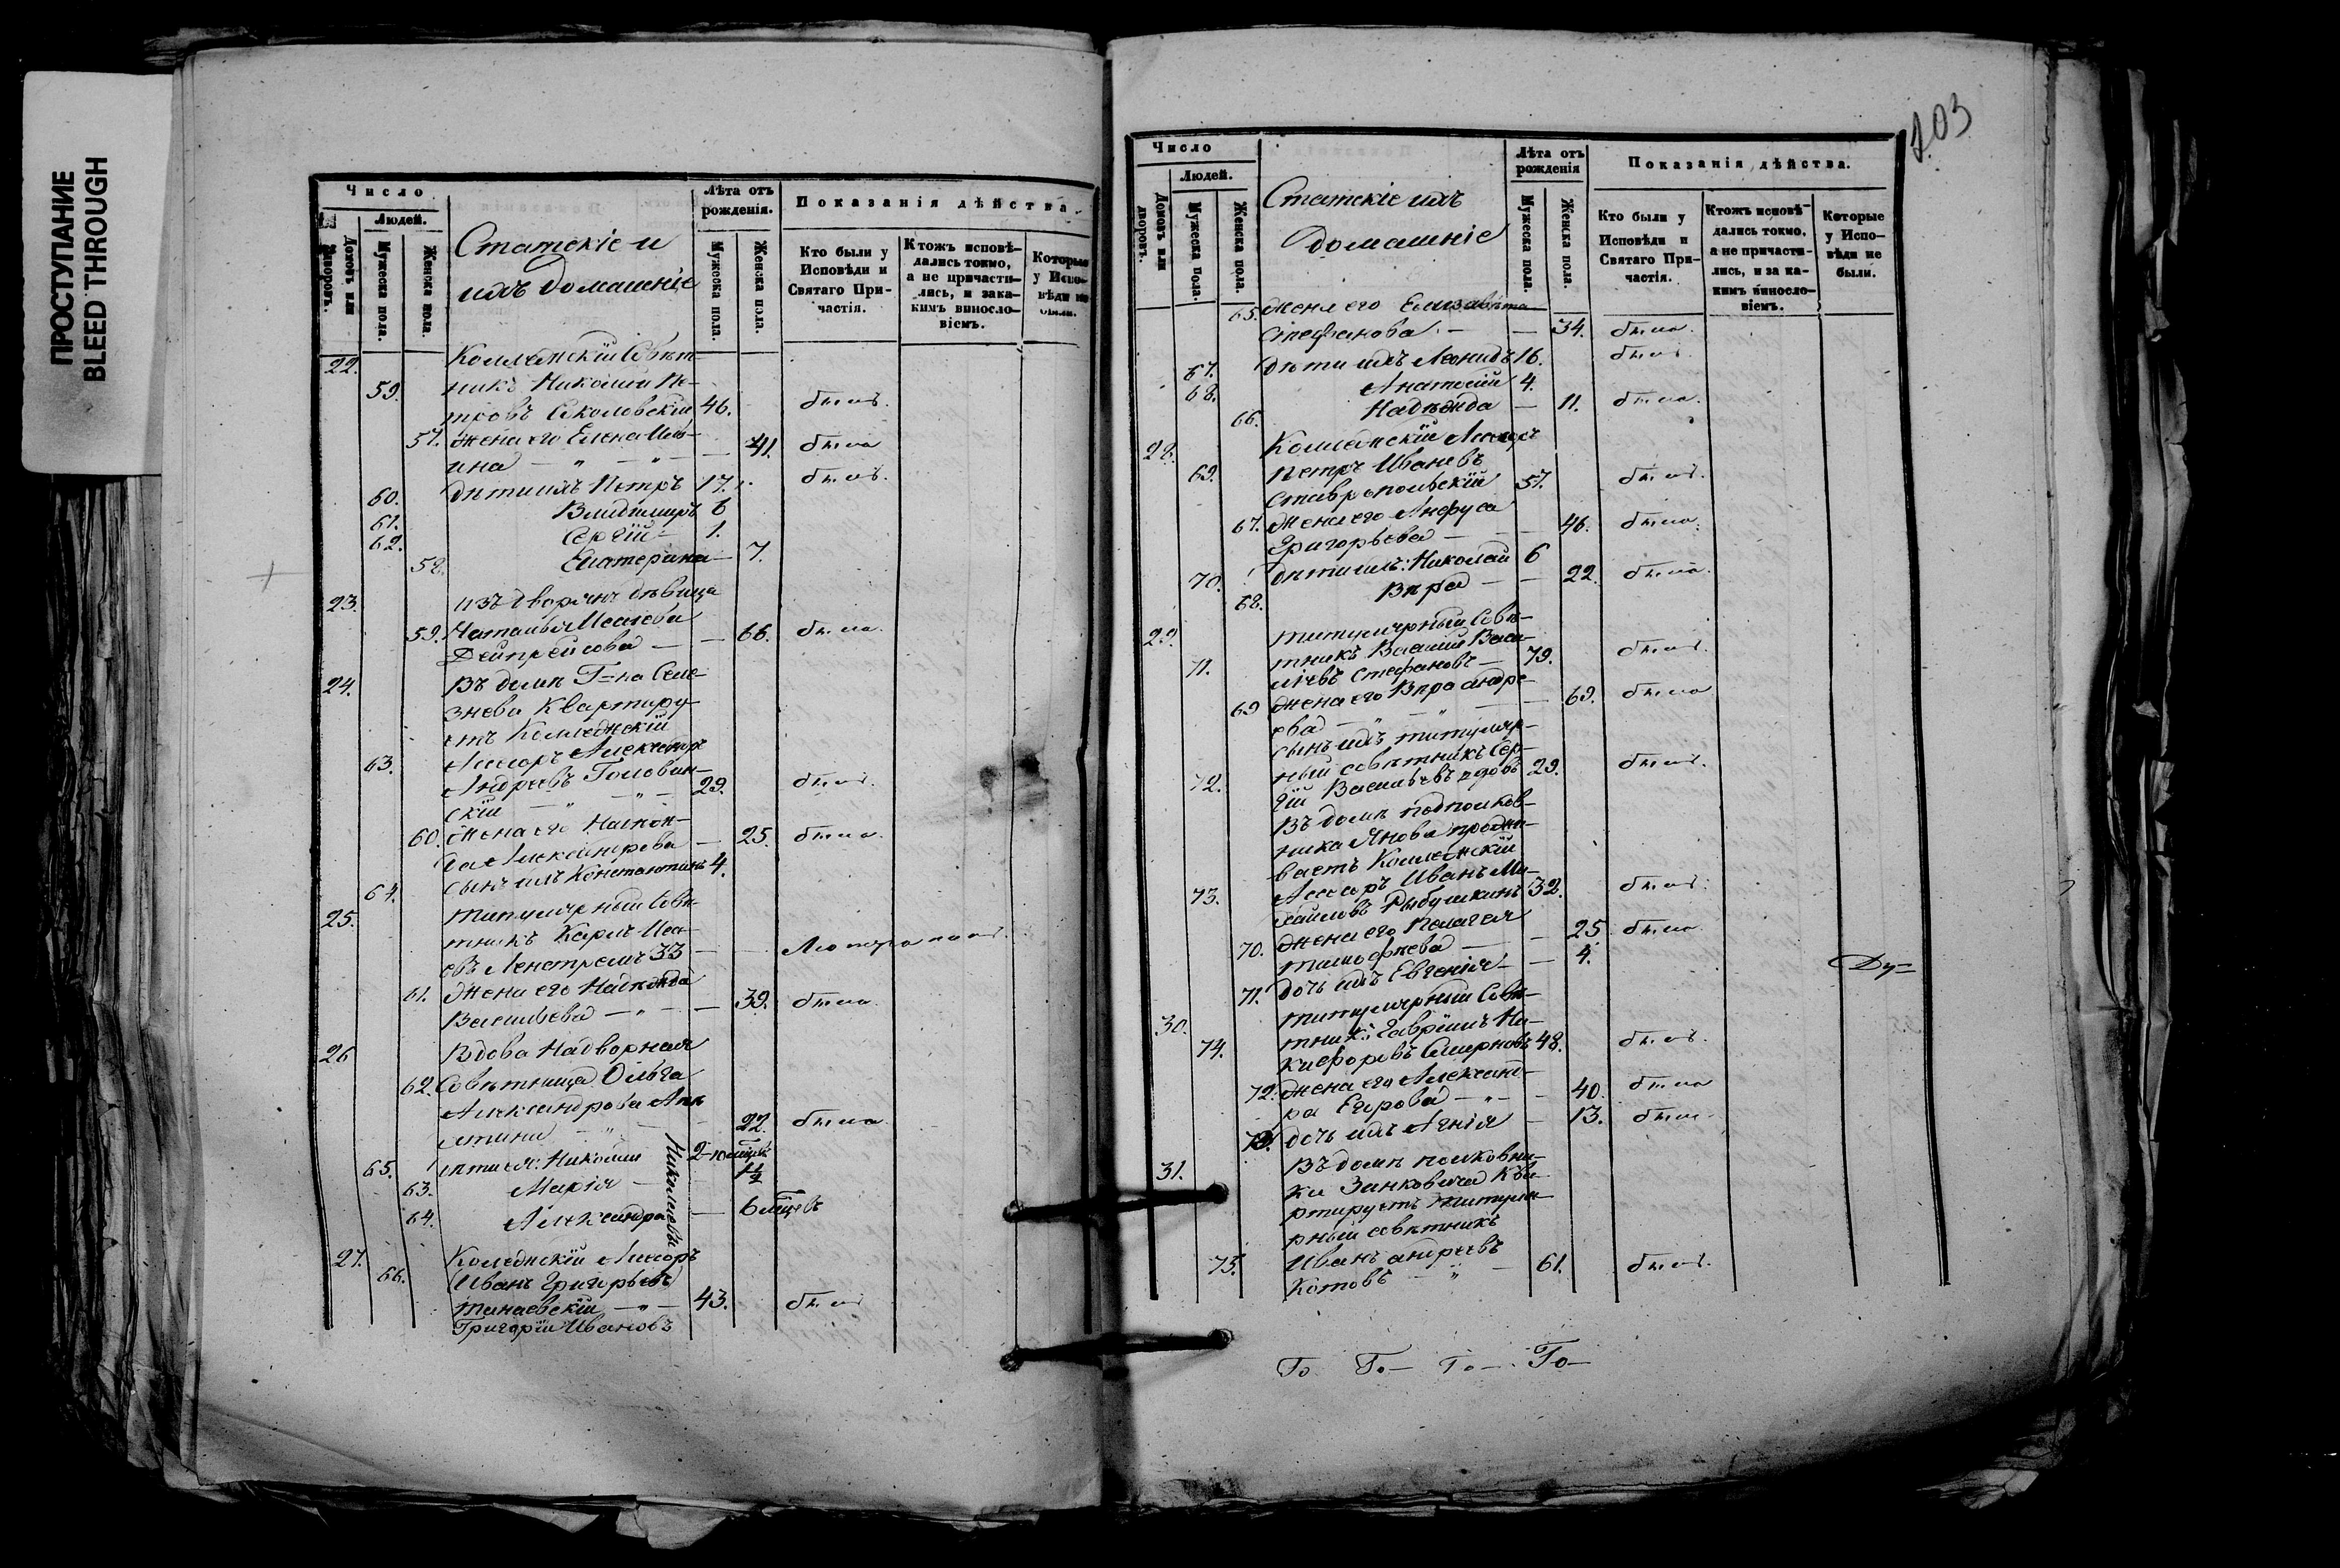 ПРОСТУПАНИЕ
BLEED THROUGH
Число
Людей.
Домовъ или дворовъ.
Мужеска пола.
Женска пола.
Статскіе и
ихъ домашніе
Лѣта отъ рожденія.
Мужеска пола.
Женска пола.
Показанія дѣйства.
Кто были у Исповѣди и Святаго Причастія.
Ктожъ исповѣдались токмо, а не причастились, и за какимъ винословіемъ.
Которые у Исповѣди не были.
22. Коллежскій Совѣт-
59. никъ Николай Пе-
тровъ Соколовскій 46. былъ.
57. жена его Елена Иль-
ина — " — " — 41. была
60. дѣти ихъ Петръ 17. былъ.
61. Владимиръ 6
62. Сергій 1.
58. Екатерина — 7.
23. изъ дворянъ дѣвица
59. Наталья Исаева
— 66. была.
24. Въ домѣ Г=на Селе-
знева квартиру-
етъ Коллежскій
63. Ассесоръ Александръ
Андреевъ Головин-
скій — " — " — 29. былъ.
60. Жена его
Александрова — 25. была.
64. сынъ ихъ Константинъ 4.
25. Титулярный Совѣ-
тникъ Карлъ
33 — Лютеранинъ.
61. Жена его Надежда
Васильева — " — 39. была.
26 Вдова Надворная
62. Совѣтница Ольга
Александрова
— " — 22. была.
65. дѣти ея: Николай 2-
63. Марія — 1½
64. Александра — 6 мѣсцевъ
Николаевы
27. Колежскій Ассесоръ
66. Иванъ Григорьевъ
Танаевскій — " — 43. былъ
Григорій Ивановъ
203
Число
Людей.
Домовъ или дворовъ.
Мужеска пола.
Женска пола.
Статскіе ихъ
домашніе
Лѣта отъ рожденія
Мужеска пола.
Женска пола.
Показанія дѣйства.
Кто были у Исповѣди и Святаго Причастія.
Ктожъ исповѣдались токмо, а не причастились, и за какимъ винословіемъ.
Которые у Исповѣди не были.
65. жена его Елизавѣта
Стефанова. — — 34. была.
67. Дѣти ихъ Леонидъ 16. былъ.
68. Анатолій 4.
66. Надежда — 11. была.
28. Коллежскій Ассесоръ
69. Петръ Ивановъ
Ставропольскій 57. былъ.
67. Жена его Анфуса
Григорьева — — 46. была.
70. дѣти ихъ: Николай 6
68. Вѣра — — 22. была.
29. Титулярный Совѣ-
71. тникъ Василій Васи-
льевъ Стефановъ — 79. былъ.
69 Жена его Вѣра андре-
ева — " — " — 69. была
сынъ ихъ титуляр-
72. ный совѣтникъ Сер-
гій Васильевъ вдовъ 29. былъ.
Въ домѣ подполков-
ника Янова прожи-
ваетъ Коллежскій
73. Ассесоръ Иванъ Ми-
хайловъ Рыбушкинъ 32. былъ.
70. Жена его Пелагея
Тимофеева — — 25 была.
71. дочь ихъ Евгенія — — 4.
Ду=
30. Титулярный Совѣ-
74. тникъ Гавріилъ Ни-
кифоровъ Смирновъ 48. былъ.
72. Жена его Александ-
ра Егорова — " — 40. была
73. дочь ихъ Агнія — 13. была.
31. Въ домѣ полковни-
ка Занковича ква-
ртируетъ титуля-
рный совѣтникъ
75. Иванъ андреевъ
Котовъ — " — 61. былъ.
То То — То — То —